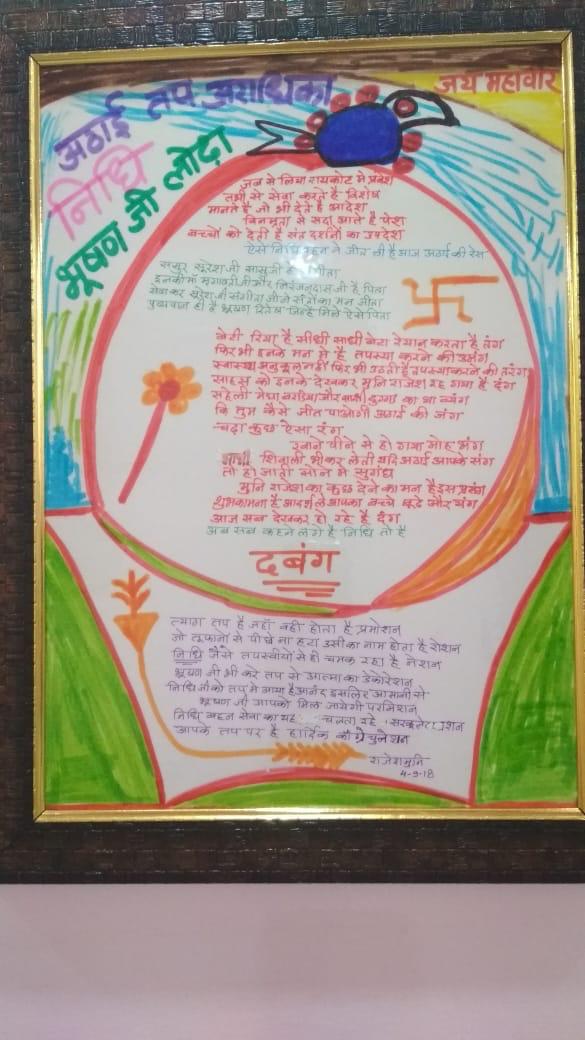 जय महावीर
अठाई तप अराधिका
निधि
भूषण जी लोढ़ा
जब से लिया रायकोट मे प्रवेश
तभी से सेवा करते है विशेष
मानते है जो भी देते है आदेश
विनम्रता से सदा आते है पेश
बच्चों को देती है संत दर्शनो का उपदेश
ऐसे निधि बहन ने जीत ली है आज अठाई की रेस
ससुर सुरेश जी सासुजी है
इनकी माँ जी और निरंजनदास जी है पिता
सेवाकर सुरेश जी संगीता जी ने संतो का मन जीता
पुण्यवान ही है भूषण जिन्हे मिले ऐसे पिता
बेटी रिया है सीधी साधी बेटा रेयान करता है तंग
फिर भी इनके मन मे है तपस्या करने की उमंग
स्वास्थ्य अनुकूल नही फिर भी उठती है तपस्या करने की तरंग
साहस को इनके देखकर मुनि राजेश रह गया है दंग
सहेली मेघा बरडिया और का था व्यंग
कि तुम कैसे जीत पाओगी अठाई की जंग
चढ़ा कुछ ऐसा रंग
खाने पीने से हो गया मोह भंग
शिवाली भी कर लेती यदि अठाई आपके संग
तो हो जाती सोने मे सुगंध
मुनि राजेश का कुछ देने का मन है इस प्रसंग
शुभकामना है आदर्श ले आपका बच्चे बुढ़े और यंग
आज सब देखकर हो रहे है दंग
अब सब कहने लगे है निधि तो है
दबंग
त्याग तप है जहाँ वही होता है प्रमोशन
जो तूफानो से पीछे ना हटा उसी का नाम होता है रोशन
निधि जैसे तपस्वीयो से ही चमक रहा है नेशन
भूषण जी भी करे तप से आत्मा का डेकोरेशन
निधि जी को तप मे आया है आनंद इसलिए आसानी से
भूषण जी आपको मिल जायेगी परमिशन
निधि बहन सेवा का यह चलता रहे
आपके तप पर है हार्दिक कोंग्रेचुलेशन
राजेश मुनि
4-9-18